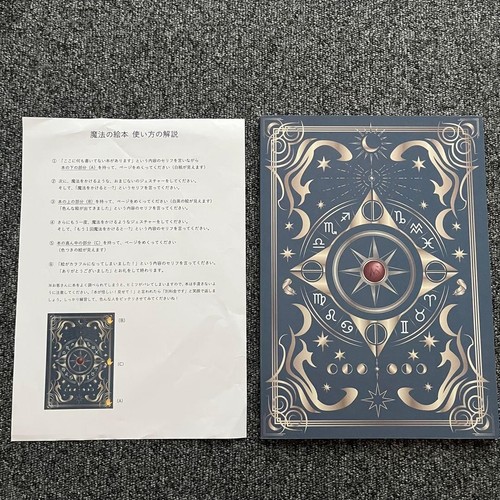 魔法の絵本 使い方の解説
① 「ここに何も書いてない本があります」という内容のセリフを言いながら
本の下の部分（A）を持って、ページをめくってください（白の絵が見えます）
② 次に、魔法をかけるような、おまじないのジェスチャーをしてください。
そして、「魔法をかけると…？」というセリフを言ってください。
③ 本の上の部分（B）を持って、ページをめくってください（白黒の絵が見えます）
「色んな絵が出てきました」という内容のセリフを言ってください。
④ さらにもう一度、魔法をかけるようなジェスチャーをしてください。
そして、「もう1回魔法をかけると…？」という内容のセリフを言ってください。
⑤ 本の真ん中の部分（C）を持って、ページをめくってください
（色つきの絵が見えます）
⑥ 「絵がカラフルになってしまいました！」という内容のセリフを言ってください。
「ありがとうございました」とお礼をして終わります。
(B)
(C)
(A)